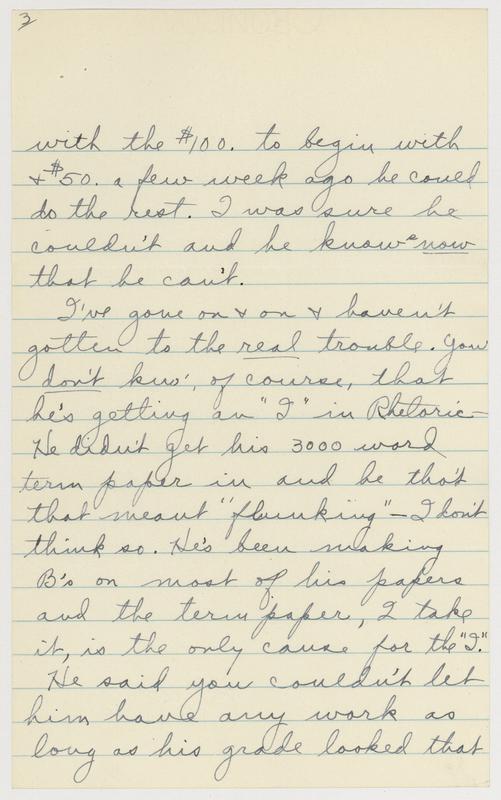 3
with the $100. to begin with
+ $50. a few week ago he could
do the rest. I was sure he
couldn't and he knows now
that he can't.
I've gone on + on + haven't
gotten to the real trouble. You
don't know, of course, that
he's getting an "I" in Rhetoric—
He didn't get his 3000 word
term paper in and he tho't
that meant "flunking" — I don't
think so. He's been making
B's on most of his papers
and the term paper, I take
it, is the only cause for the "I."
He said you couldn't let
him have any work as
long as his grade looked that